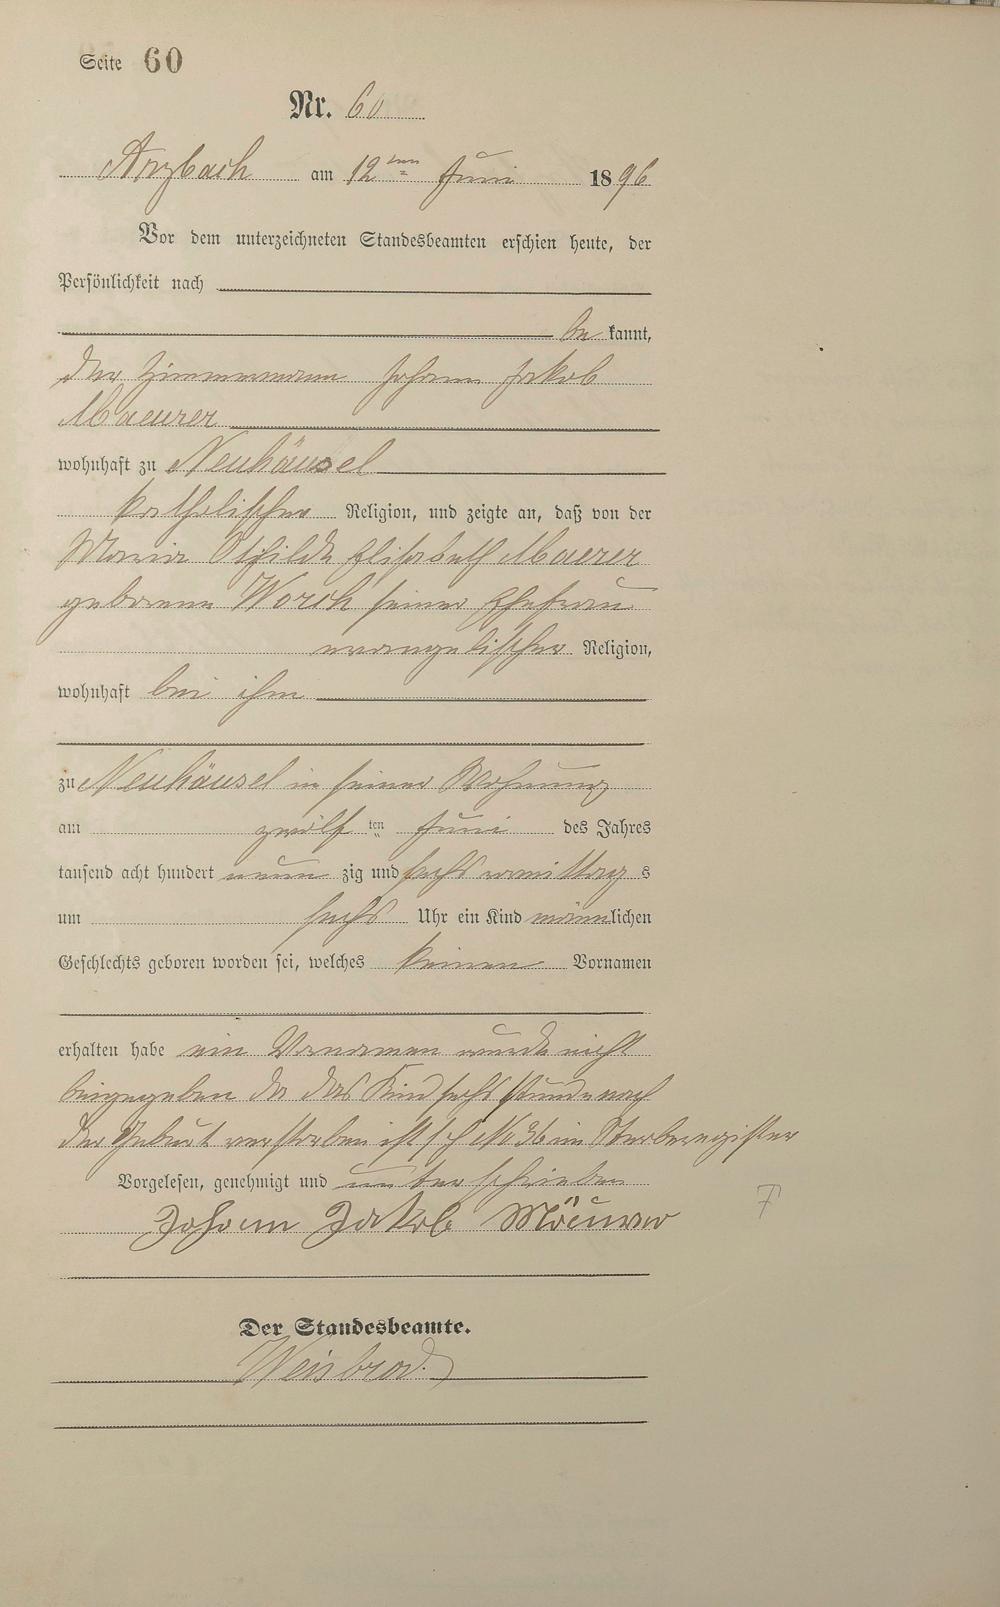 Seite 60
Nr. 60
Arzbach am 12ten Juni 1896
Vor dem unterzeichneten Standesbeamten erschien heute, der
Persönlichkeit nach
be kannt,
der Zimmermann Johann Jakob
Maeurer
wohnhaft zu Neuhäusel
katholischer Religion, und zeigte an, daß von der
Maria Othilde Elisabeth Maerer
geborene Worch seiner Ehefrau
evangelischer Religion,
wohnhaft bei ihm
zu Neuhäusel in seiner Wohnung
am zwölf ten Juni des Jahres
tausend acht hundert neun zig und sechs vormittag s
um sechs Uhr ein Kind männlichen
Geschlechts geboren worden sei, welches keinen Vornamen
erhalten habe ein Vornamen wurde nicht
beigegeben da das Kind sechs Stunde nach
der Geburt verstorben ist s. h No 36 im Sterberegister
Vorgelesen, genehmigt und unterschrieben
Johann Jakob Mäeurer
Der Standesbeamte.
Weisbrod.